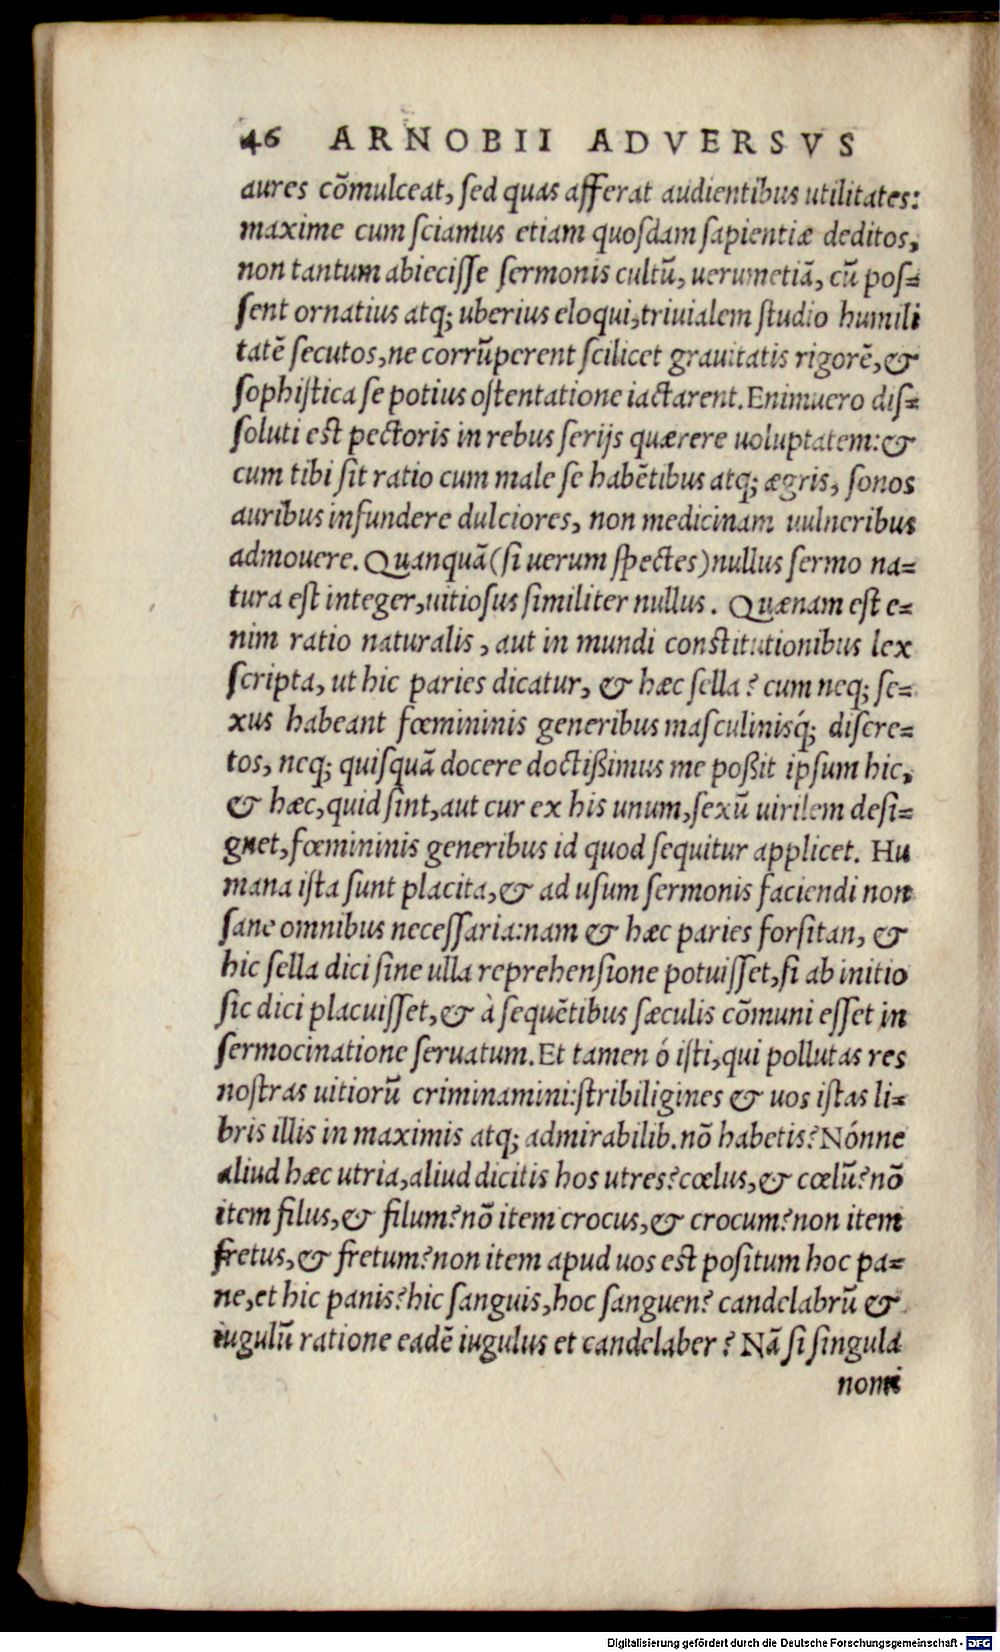 46 ARNOBII ADVERSVS
aures cõmulceat, ſed quas afferat audientibus utilitates:
maxime cum ſciamus etiam quoſdam ſapientiæ deditos,
non tantum abieciſſe ſermonis cultũ, uerumetiã, cũ poſ=
ſent ornatius atq; uberius eloqui, triuialem ſtudio humili
tatẽ ſecutos, ne corrũperent ſcilicet grauitatis rigorẽ, &
ſophiſtica ſe potius oſtentatione iactarent. Enimuero diſ=
ſoluti eſt pectoris in rebus ſerijs quærere uoluptatem: &
cum tibi ſit ratio cum male ſe habẽtibus atq; ægris, ſonos
auribus infundere dulciores, non medicinam uulneribus
admouere. Quanquã (ſi uerum ſpectes) nullus ſermo na=
tura eſt integer, uitioſus ſimiliter nullus. Quænam eſt e=
nim ratio naturalis, aut in mundi conſtitutionibus lex
ſcripta, ut hic paries dicatur, & hæc ſella? cum neq; ſe=
xus habeant fœmininis generibus maſculinisq́; diſcre=
tos, neq; quiſquã docere doctiſſimus me poſſit ipſum hic,
& hæc, quid ſint, aut cur ex his unum, ſexũ uirilem deſi=
gnet, fœmininis generibus id quod ſequitur applicet. Hu
mana iſta ſunt placita, & ad uſum ſermonis faciendi non
ſane omnibus neceſſaria: nam & hæc paries forſitan, &
hic ſella dici ſine ulla reprehenſione potuiſſet, ſi ab initio
ſic dici placuiſſet, & à ſequẽtibus ſæculis cõmuni eſſet in
ſermocinatione ſeruatum. Et tamen ó iſti, qui pollutas res
noſtras uitiorũ criminamini: ſtribiligines & uos iſtas li=
bris illis in maximis atq; admirabilib. nõ habetis? Nónne
aliud hæc utria, aliud dicitis hos utres? cœlus, & cœlũ? nõ
item filus, & filum? nõ item crocus, & crocum? non item
fretus, & fretum? non item apud uos eſt poſitum hoc pa=
ne, et hic panis? hic ſanguis, hoc ſanguen? candelabrũ &
iugulũ ratione eadẽ iugulus et candelaber? Nã ſi ſingula
nomi
Digitalisierung gefördert durch die Deutsche Forschungsgemeinschaft - DFG